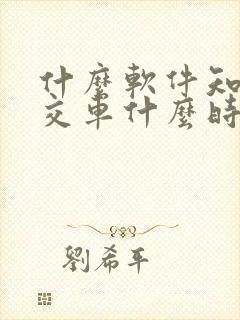 什麼軟件知
交車什麼時
劉希平